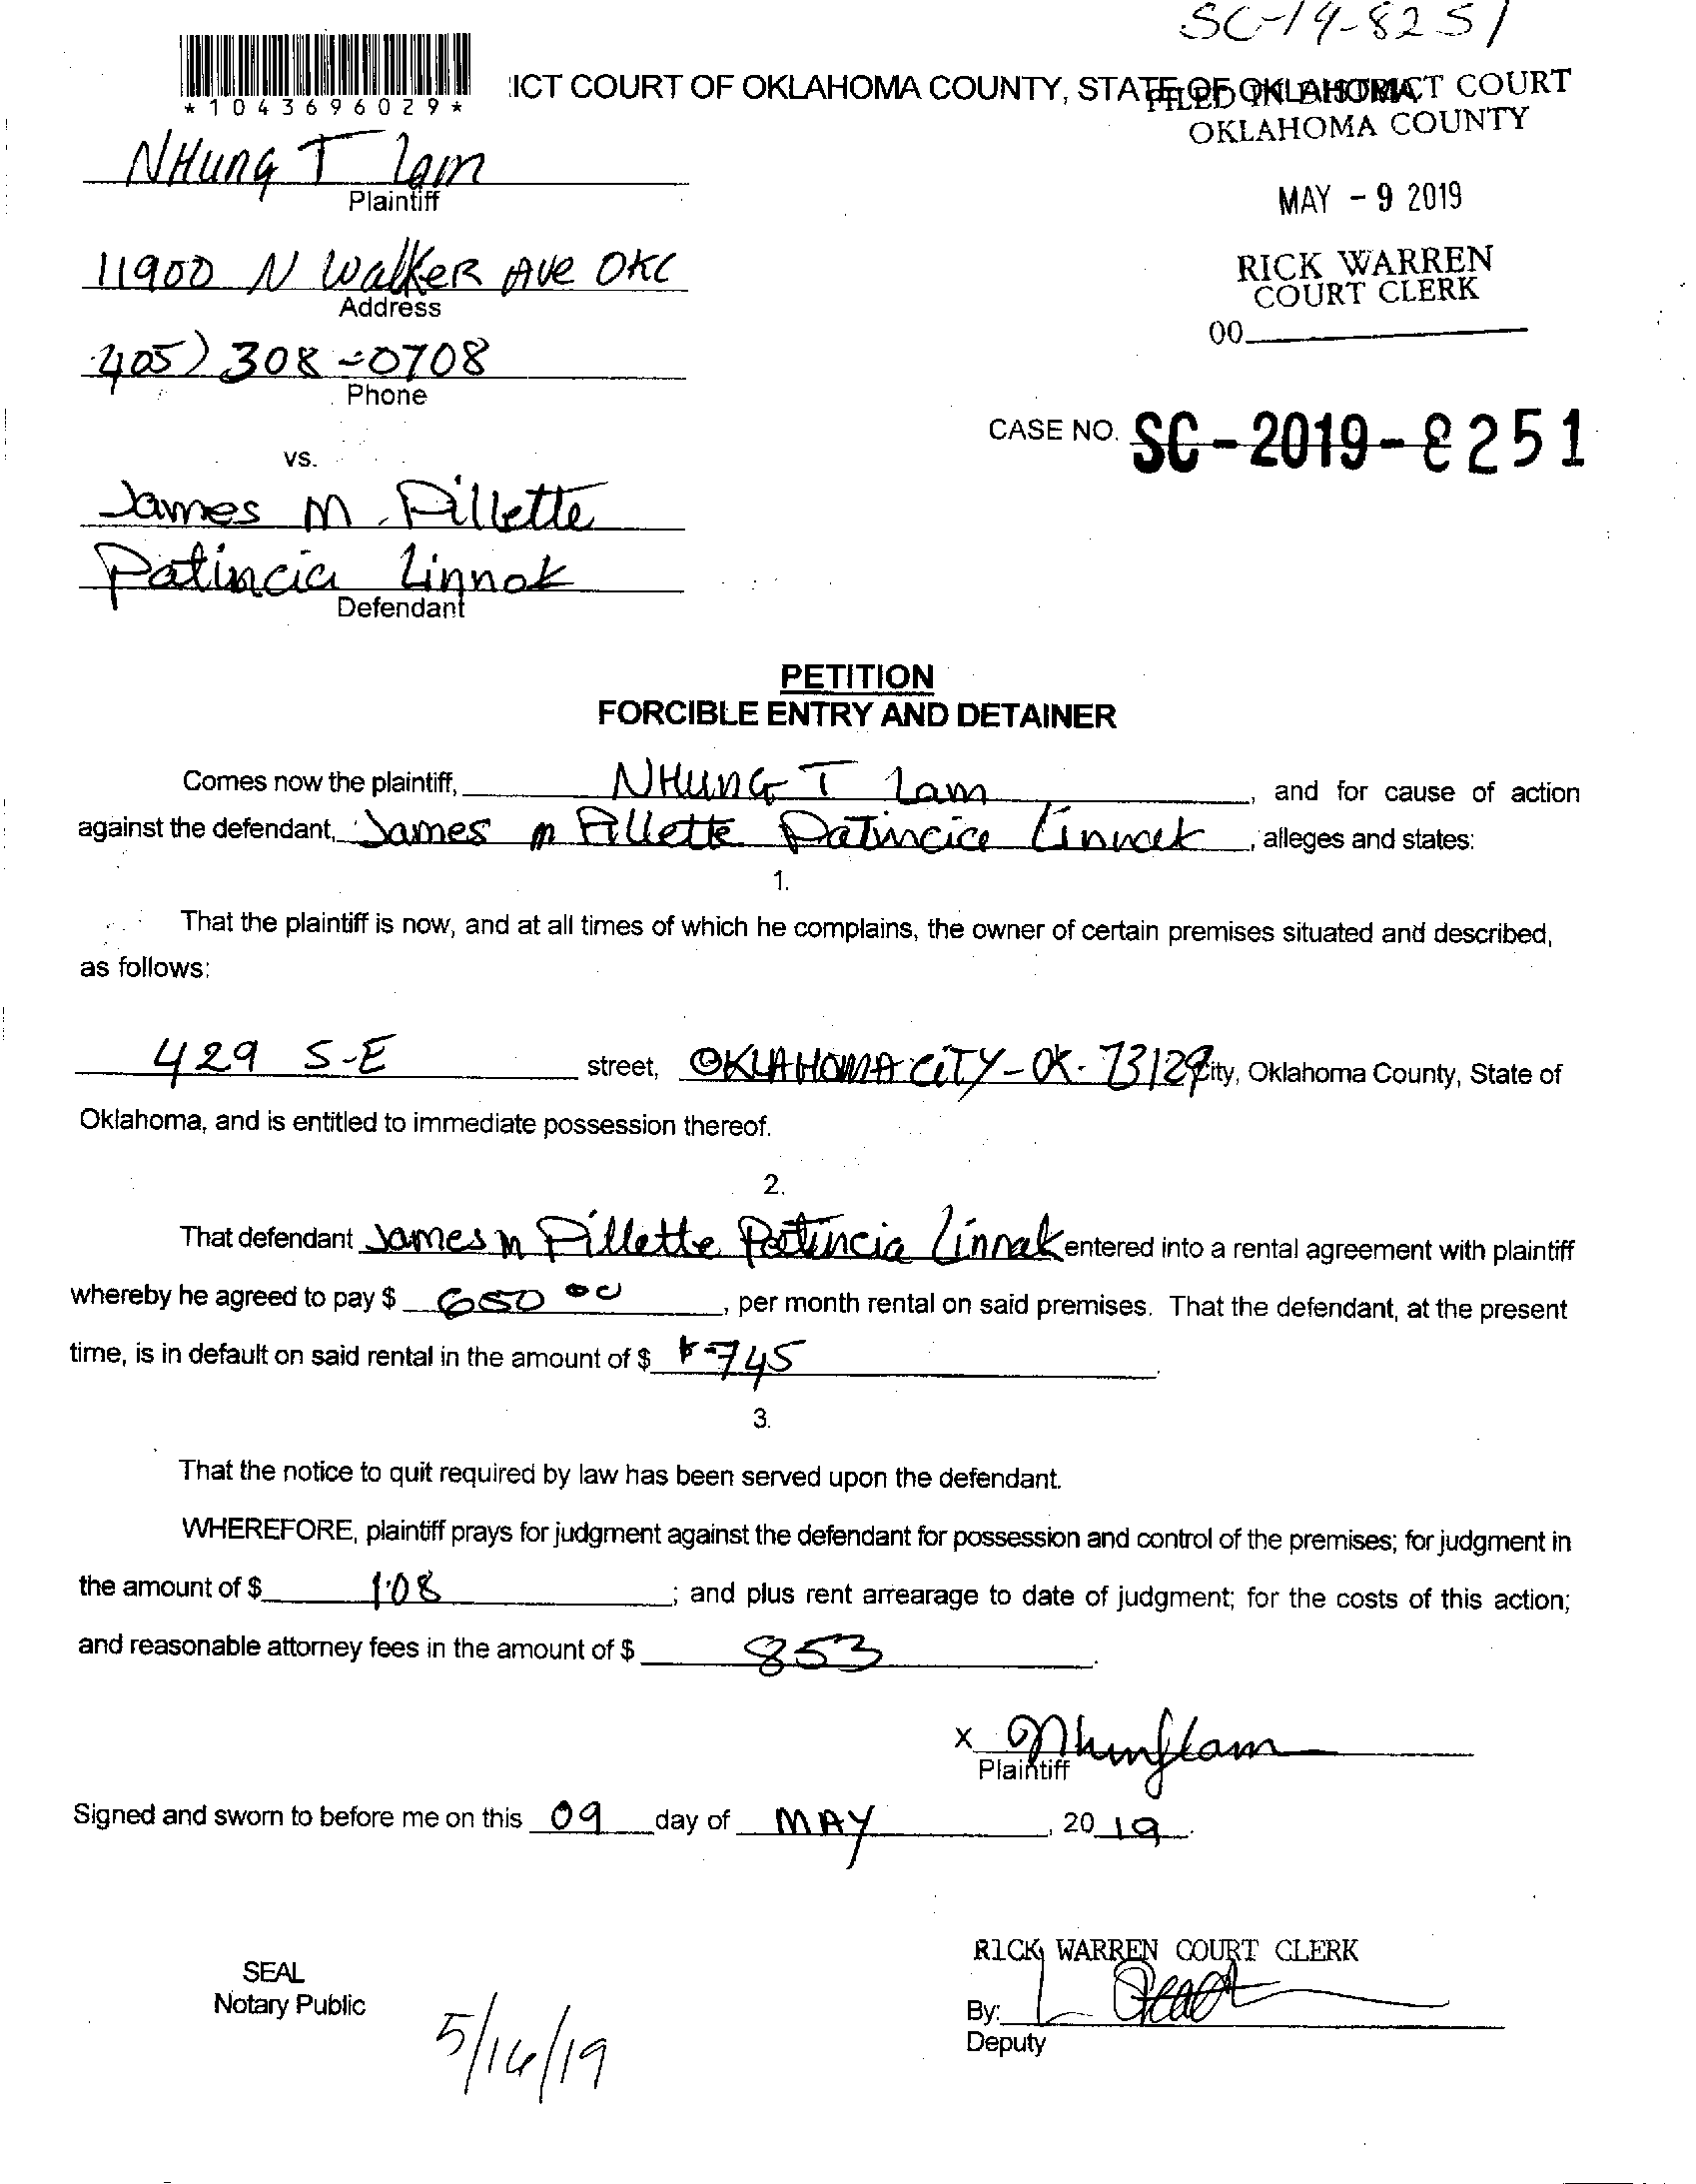 SC-19-8251
*1043696029*
ICT COURT OF OKLAHOMA COUNTY, STATE OF OKLAHOMA
FILED IN DISTRICT COURT
OKLAHOMA COUNTY
NHung T Lam
Plaintiff
MAY - 9 2019
11900 N Walker Ave OKC
Address
RICK WARREN
COURT CLERK
00
405) 308-0708
Phone
CASE NO. SC-2019-8251
vs.
James M. Pillette
Patincia Linnok
Defendant
PETITION
FORCIBLE ENTRY AND DETAINER
Comes now the plaintiff, NHUNG T Lam, and for cause of action
against the defendant, James m Pillette Patincia, alleges and states:
1.
That the plaintiff is now, and at all times of which he complains, the owner of certain premises situated and described,
as follows:
429 S-E street, OKLAHOMA CiTY-OK. 73129 City, Oklahoma County, State of
Oklahoma, and is entitled to immediate possession thereof.
2.
That defendant James m Pillette Patincia Linnak entered into a rental agreement with plaintiff
whereby he agreed to pay $ 650 00, per month rental on said premises. That the defendant, at the present
time, is in default on said rental in the amount of $ 745.
3.
That the notice to quit required by law has been served upon the defendant.
WHEREFORE, plaintiff prays for judgment against the defendant for possession and control of the premises; for judgment in
the amount of $ 108; and plus rent arrearage to date of judgment; for the costs of this action;
and reasonable attorney fees in the amount of $ 853.
x Nhunglam
Plaintiff
Signed and sworn to before me on this 09 day of MAY, 20 19.
RICK WARREN COURT CLERK
SEAL
Notary Public
By:
Deputy
5/16/19